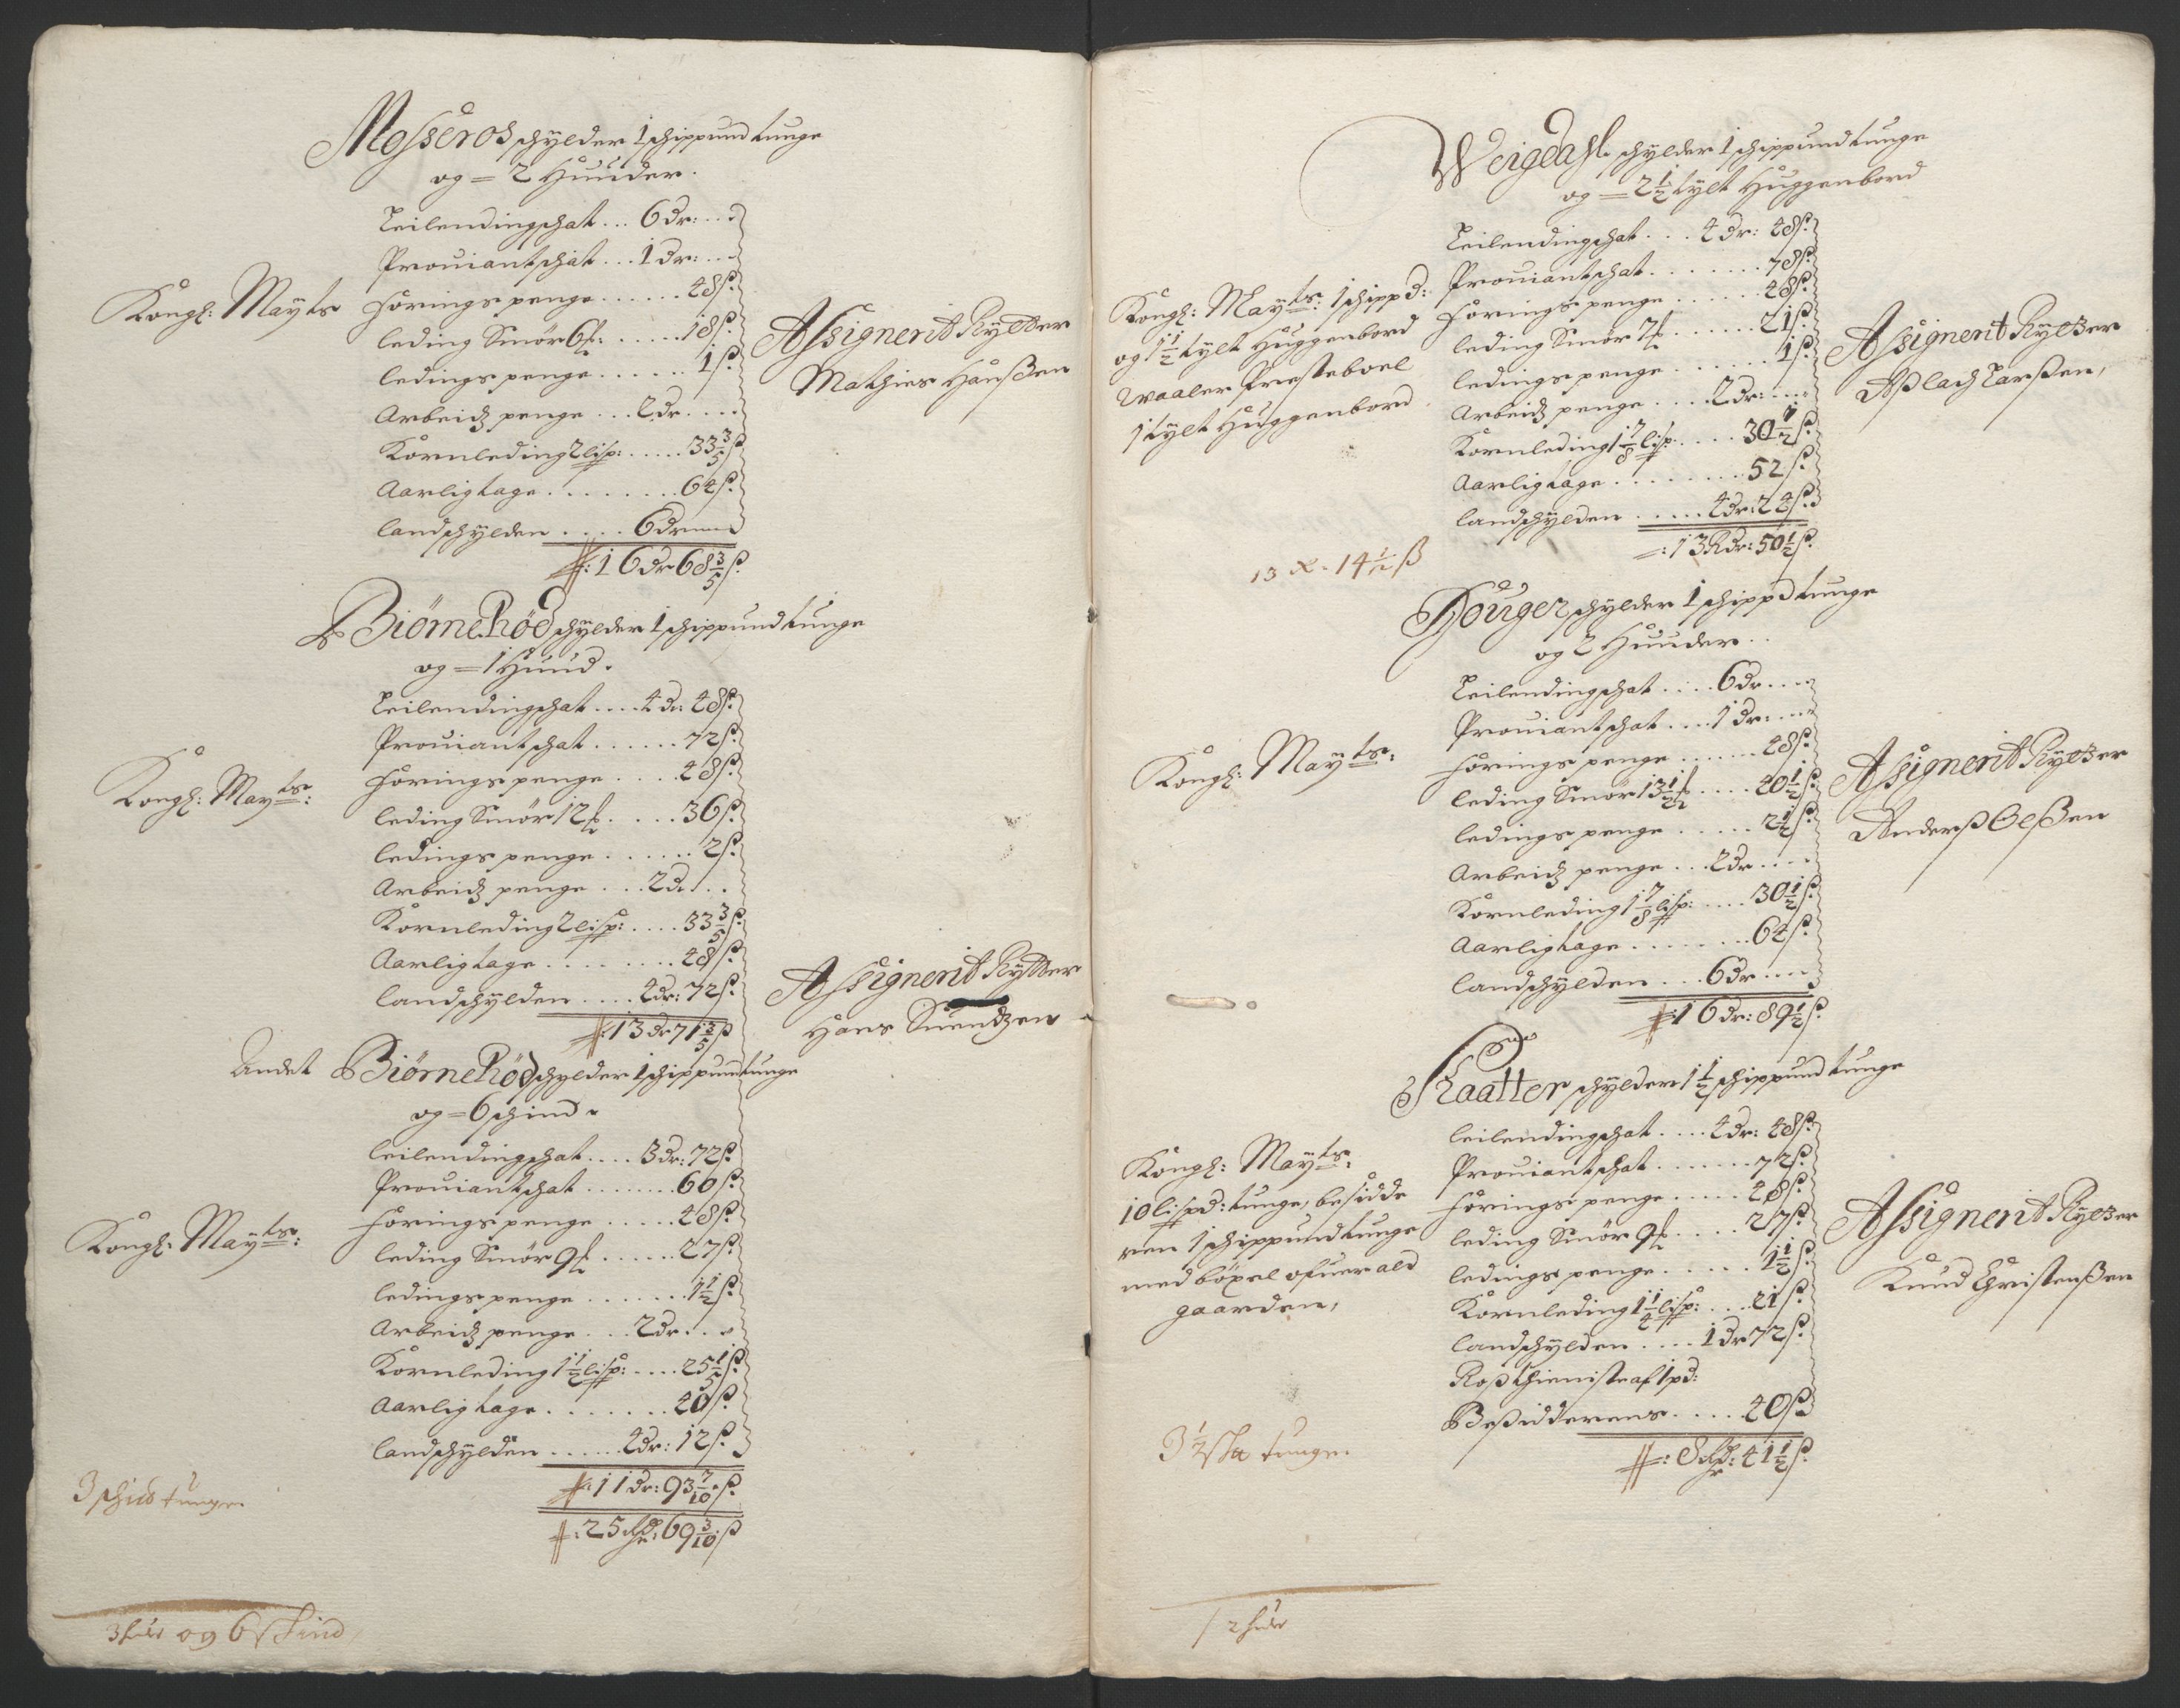 Mosseros schylder 1 schippund tunge
og = 2 Huuder.
Kongl: Mayts
Leilendingschat ... 6 dr: ...
Prouiantschat ... 1 dr: ...
Foringspenge ...... 48 s.
leding Smör 6 ...... 18 s.
ledingspenge ...... 1 s.
Arbeidspenge ... 2 dr ....
Kornleding 2 lisp: ..... 33 3/5 s
Aarligtage ........ 64 s.
landschylden .... 6 dr
16 dr 68 3/5 s.
Assignerit Rytter
Mathies Hanßen
Biörneröd schylder 1 schippund tunge
og = 1 Huud.
Kongl: Mayts:
Leilendingschat .... 4 dr: 48 s.
Prouiantschat ...... 72 s.
Foringspenge .... 48 s.
leding Smör 12 .... 36 s.
ledingspenge ...... 2 s.
Arbeidspenge ... 2 dr ..
Kornleding 2 lisp: .... 33 3/5 s.
Aarligtage ........ 48 s.
landschylden .... 4 dr: 72 s.
13 dr 71 3/5 s
Assignerit Rytter
Hans Suendzen
Andet Biörneröd schylder 1 schippund tunge
og = 6 schind.
Kongl: Mayts:
leilendingschat .... 3 dr: 72 s.
Prouiantschat ....... 60 s.
Foringspenge ..... 48 s.
leding Smör 9 ...... 27 s.
ledingspenge ....... 1 1/2 s.
Arbeidspenge ... 2 dr ...
Kornleding 1 1/2 lisp: .... 25 1/5 s.
Aarligtage ....... 40 s.
landschylden ..... 4 dr: 12 s.
11 dr: 93 7/10 s.
25 Rdr: 69 3/10 s
3 schind tunge.
3 hud og 6 skind
Weigdahl schylder 1 schippund tunge
og = 2 1/2 tylt Huggenbord
Kongl: Mayts: 1 schippd:
og 1 1/2 tylt Huggenbord
Waaler Presteboel
1 tylt Huggenbord
Leilendingschat ... 4 dr: 48 s.
Prouiantschat ....... 78 s.
Foringspenge ...... 48 s.
leding Smör 7 ...... 21 s.
ledingspenge ...... 1 s.
Arbeidspenge .... 2 dr: ...
Kornleding 1 7/8 lisp: .... 30 1/2 s.
Aarligtage ........ 52 s.
landschylden ..... 4 dr: 24 s.
13 Rdr: 50 1/2 s.
13 14 1/2 ß
Assignerit Rytzer
Aßlach Larßen,
Houger schylder 1 schippd tunge
og 2 Huuder ..
Kongl: Mayts:
Leilendingschat .... 6 dr ....
Prouiantschat .... 1 dr: ...
Foringspenge ...... 48 s.
leding Smör 13 1/2 .... 40 1/2 s.
ledingspenge ..... 2 1/4 s.
Arbeidspenge ... 2 dr ....
Kornleding 1 7/8 lisp: .... 30 1/2 s.
Aarligtage ........ 64 s.
landschylden ... 6 dr ....
16 dr: 89 1/2 s.
Assignerit Rytzer
Anderß Olßen
Kraatter schylder 1 1/2 schippund tunge
Kongl: Mayts:
10 lispd: tunge, besidde
ren 1 schippund tunge
med böxel ofuer ald
gaarden,
leilendingschat .... 4 dr: 48 s.
Prouiantschat ....... 72 s.
Foringspenge ..... 48 s.
leding Smör 9 .... 27 s.
ledingspenge ..... 1 1/2 s.
Kornleding 1 1/4 lisp: ... 21 s.
landschylden .... 1 dr 72 s.
Roßthieniste af 1 pd:
Beßidderens .... 40 s
8 Rdr: 41 1/2 s.
Assignerit Rytzer
Knud Christenßen
3 1/2 tunge.
2 hude